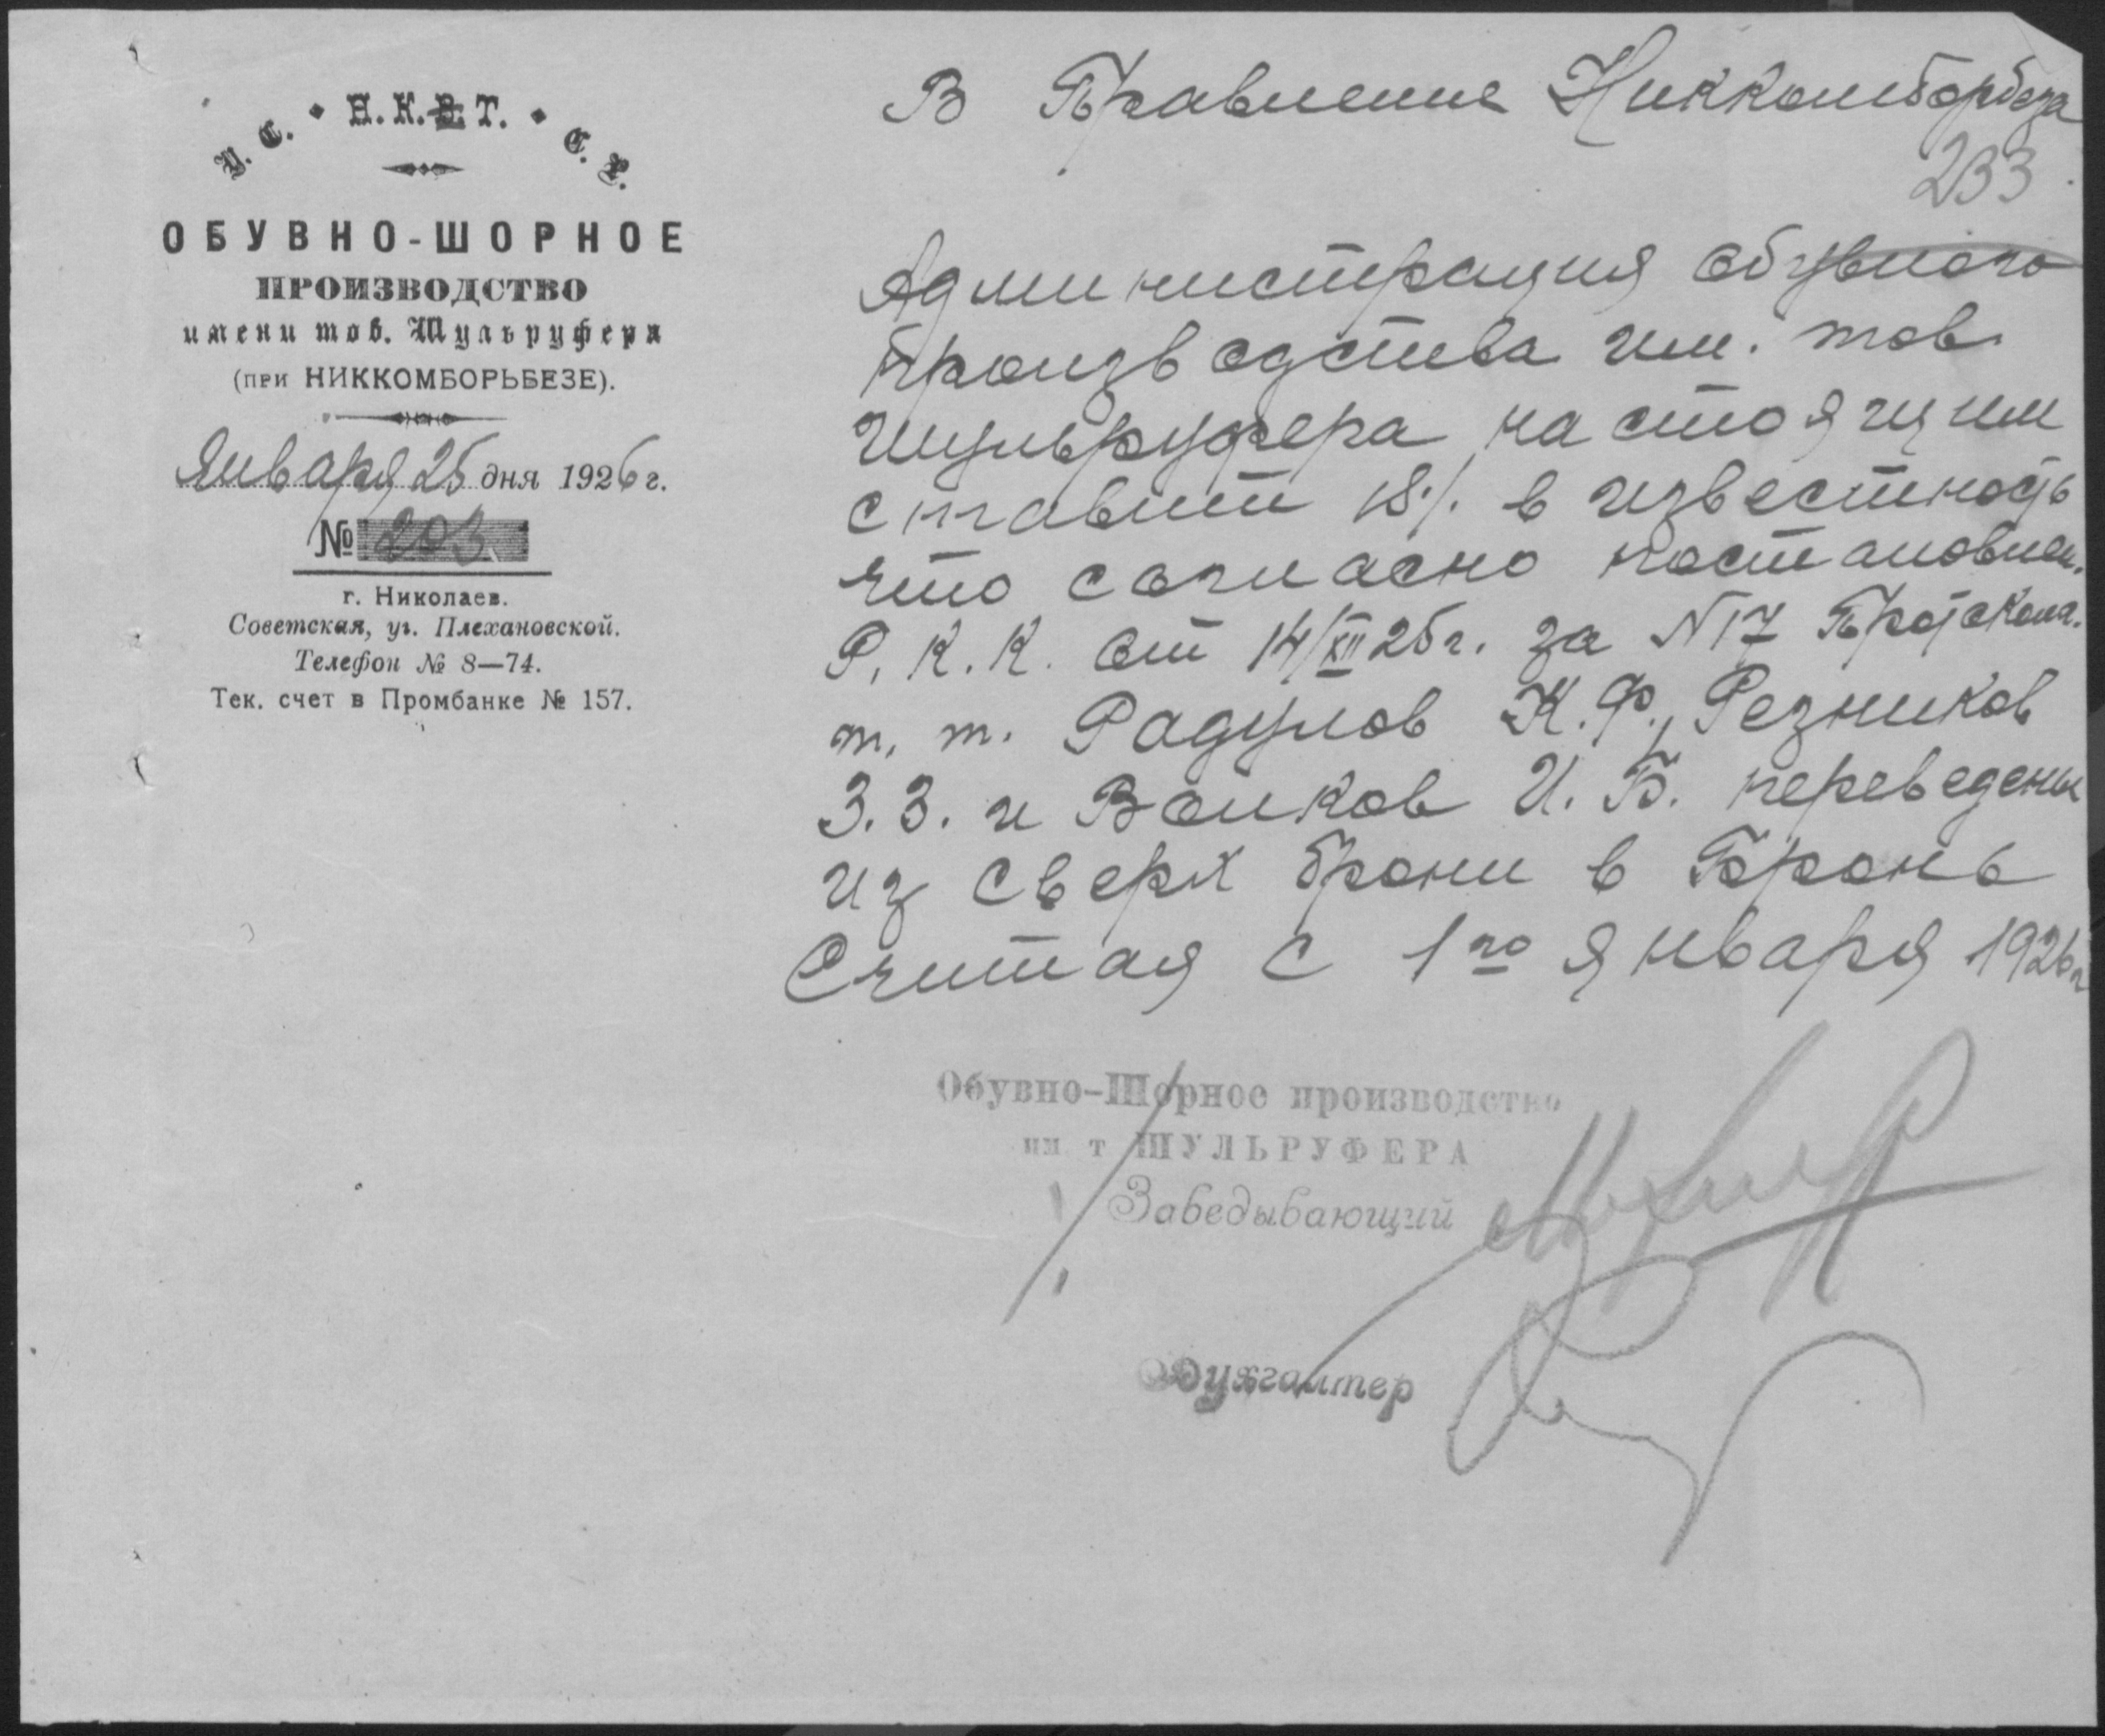 У. С. Н.К.В.Т. С. Р.
ОБУВНО-ШОРНОЕ
ПРОИЗВОДСТВО
имени тов. Шульруфера
(при НИККОМБОРЬБЕЗЕ).
Января 25 дня 1926 г.
№ 203
г. Николаев.
Советская, уг. Плехановской.
Телефон № 8—74.
Тек. счет в Промбанке № 157.
В Правление Никкомборбеза
233
Администрация обувного
производства им. тов.
Шульруфера настоящим
ставит В/. в известность
что согласно постановлен.
Р. К. К. от 14/XII 25 г. за N 17 Протокола.
т. т. Радулов К. Ф., Резников
З. З. и Волков И. Б. переведены
из сверх брони в Бронь
Считая с 1го января 1926 г
Обувно-Шорное производство
им. т ШУЛЬРУФЕРА
Заведывающий
Бухгалтер